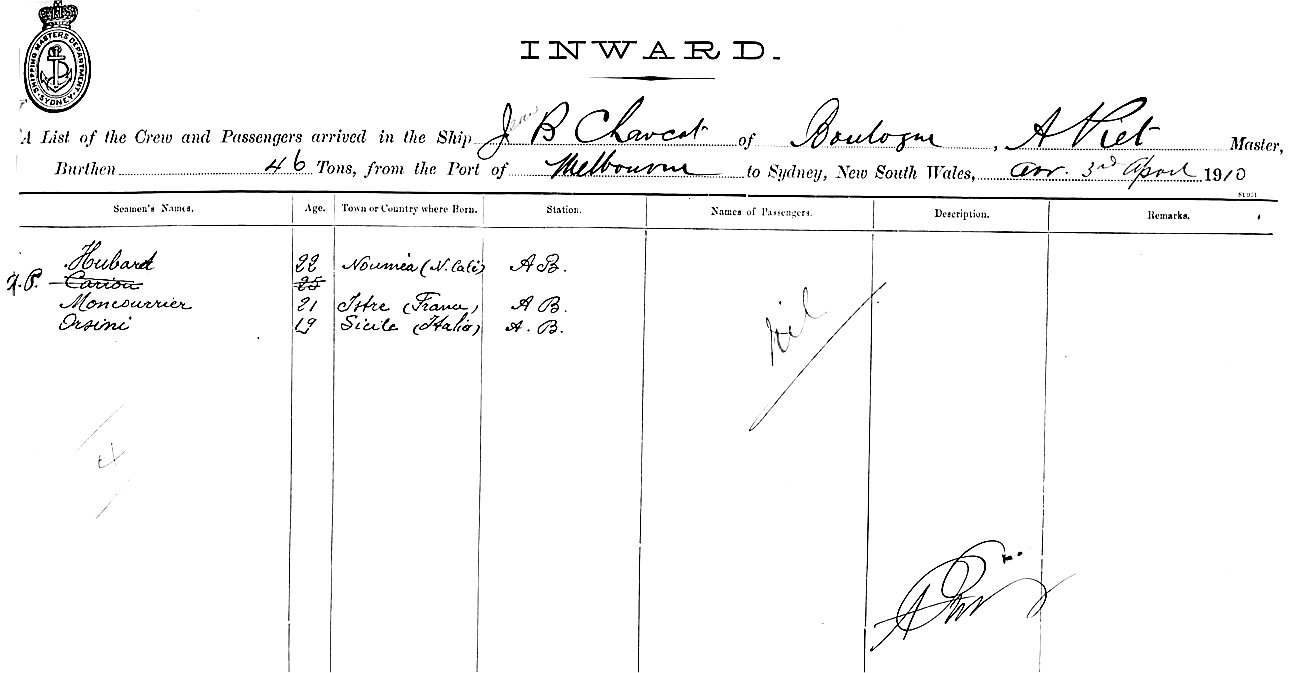 SHIPPING MASTERS DEPARTMENT SYDNEY
INWARD.
A List of the Crew and Passengers arrived in the Ship J B Charcot of Boulogne, A Riet Master,
Burthen 46 Tons, from the Port of Melbourne to Sydney, New South Wales, arr. 3rd April 1910
Seamen's Names. Age. Town or Country where Born. Station. Names of Passengers. Description. Remarks.
Hubard 22 Nouméa (N. Calé) A B.
Cariou 25
Moncourrier 21 Istre (France) A B.
Orsini 19 Sicile (Italie) A. B.
Nil
4